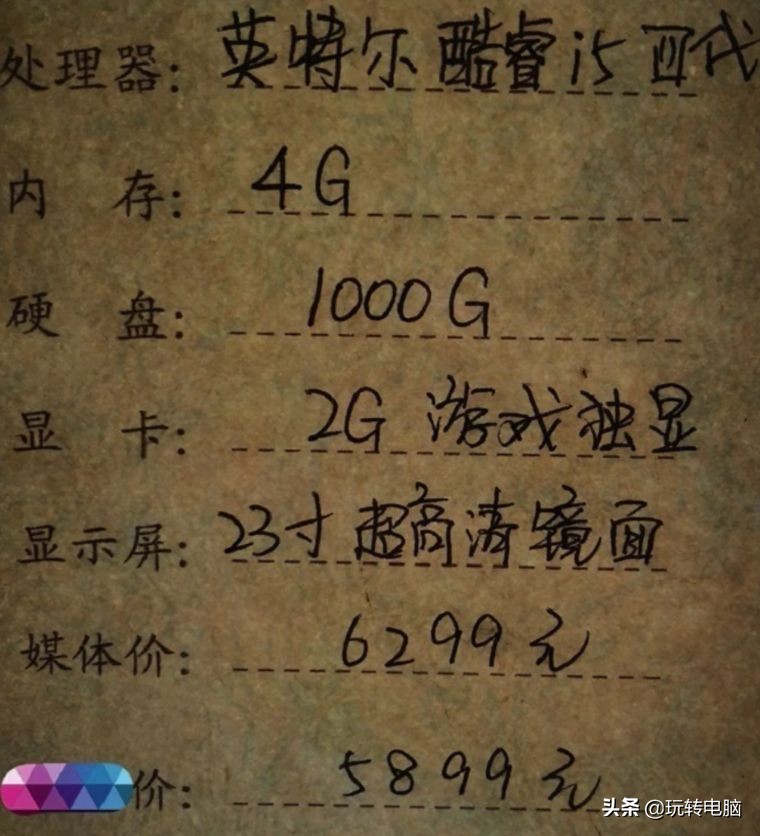 处理器: 英特尔 酷睿 i5 四代
内存: 4G
硬盘: 1000G
显卡: 2G 游戏独显
显示屏: 23寸 超高清镜面
媒体价: 6299元
价: 5899元
头条 @玩转电脑